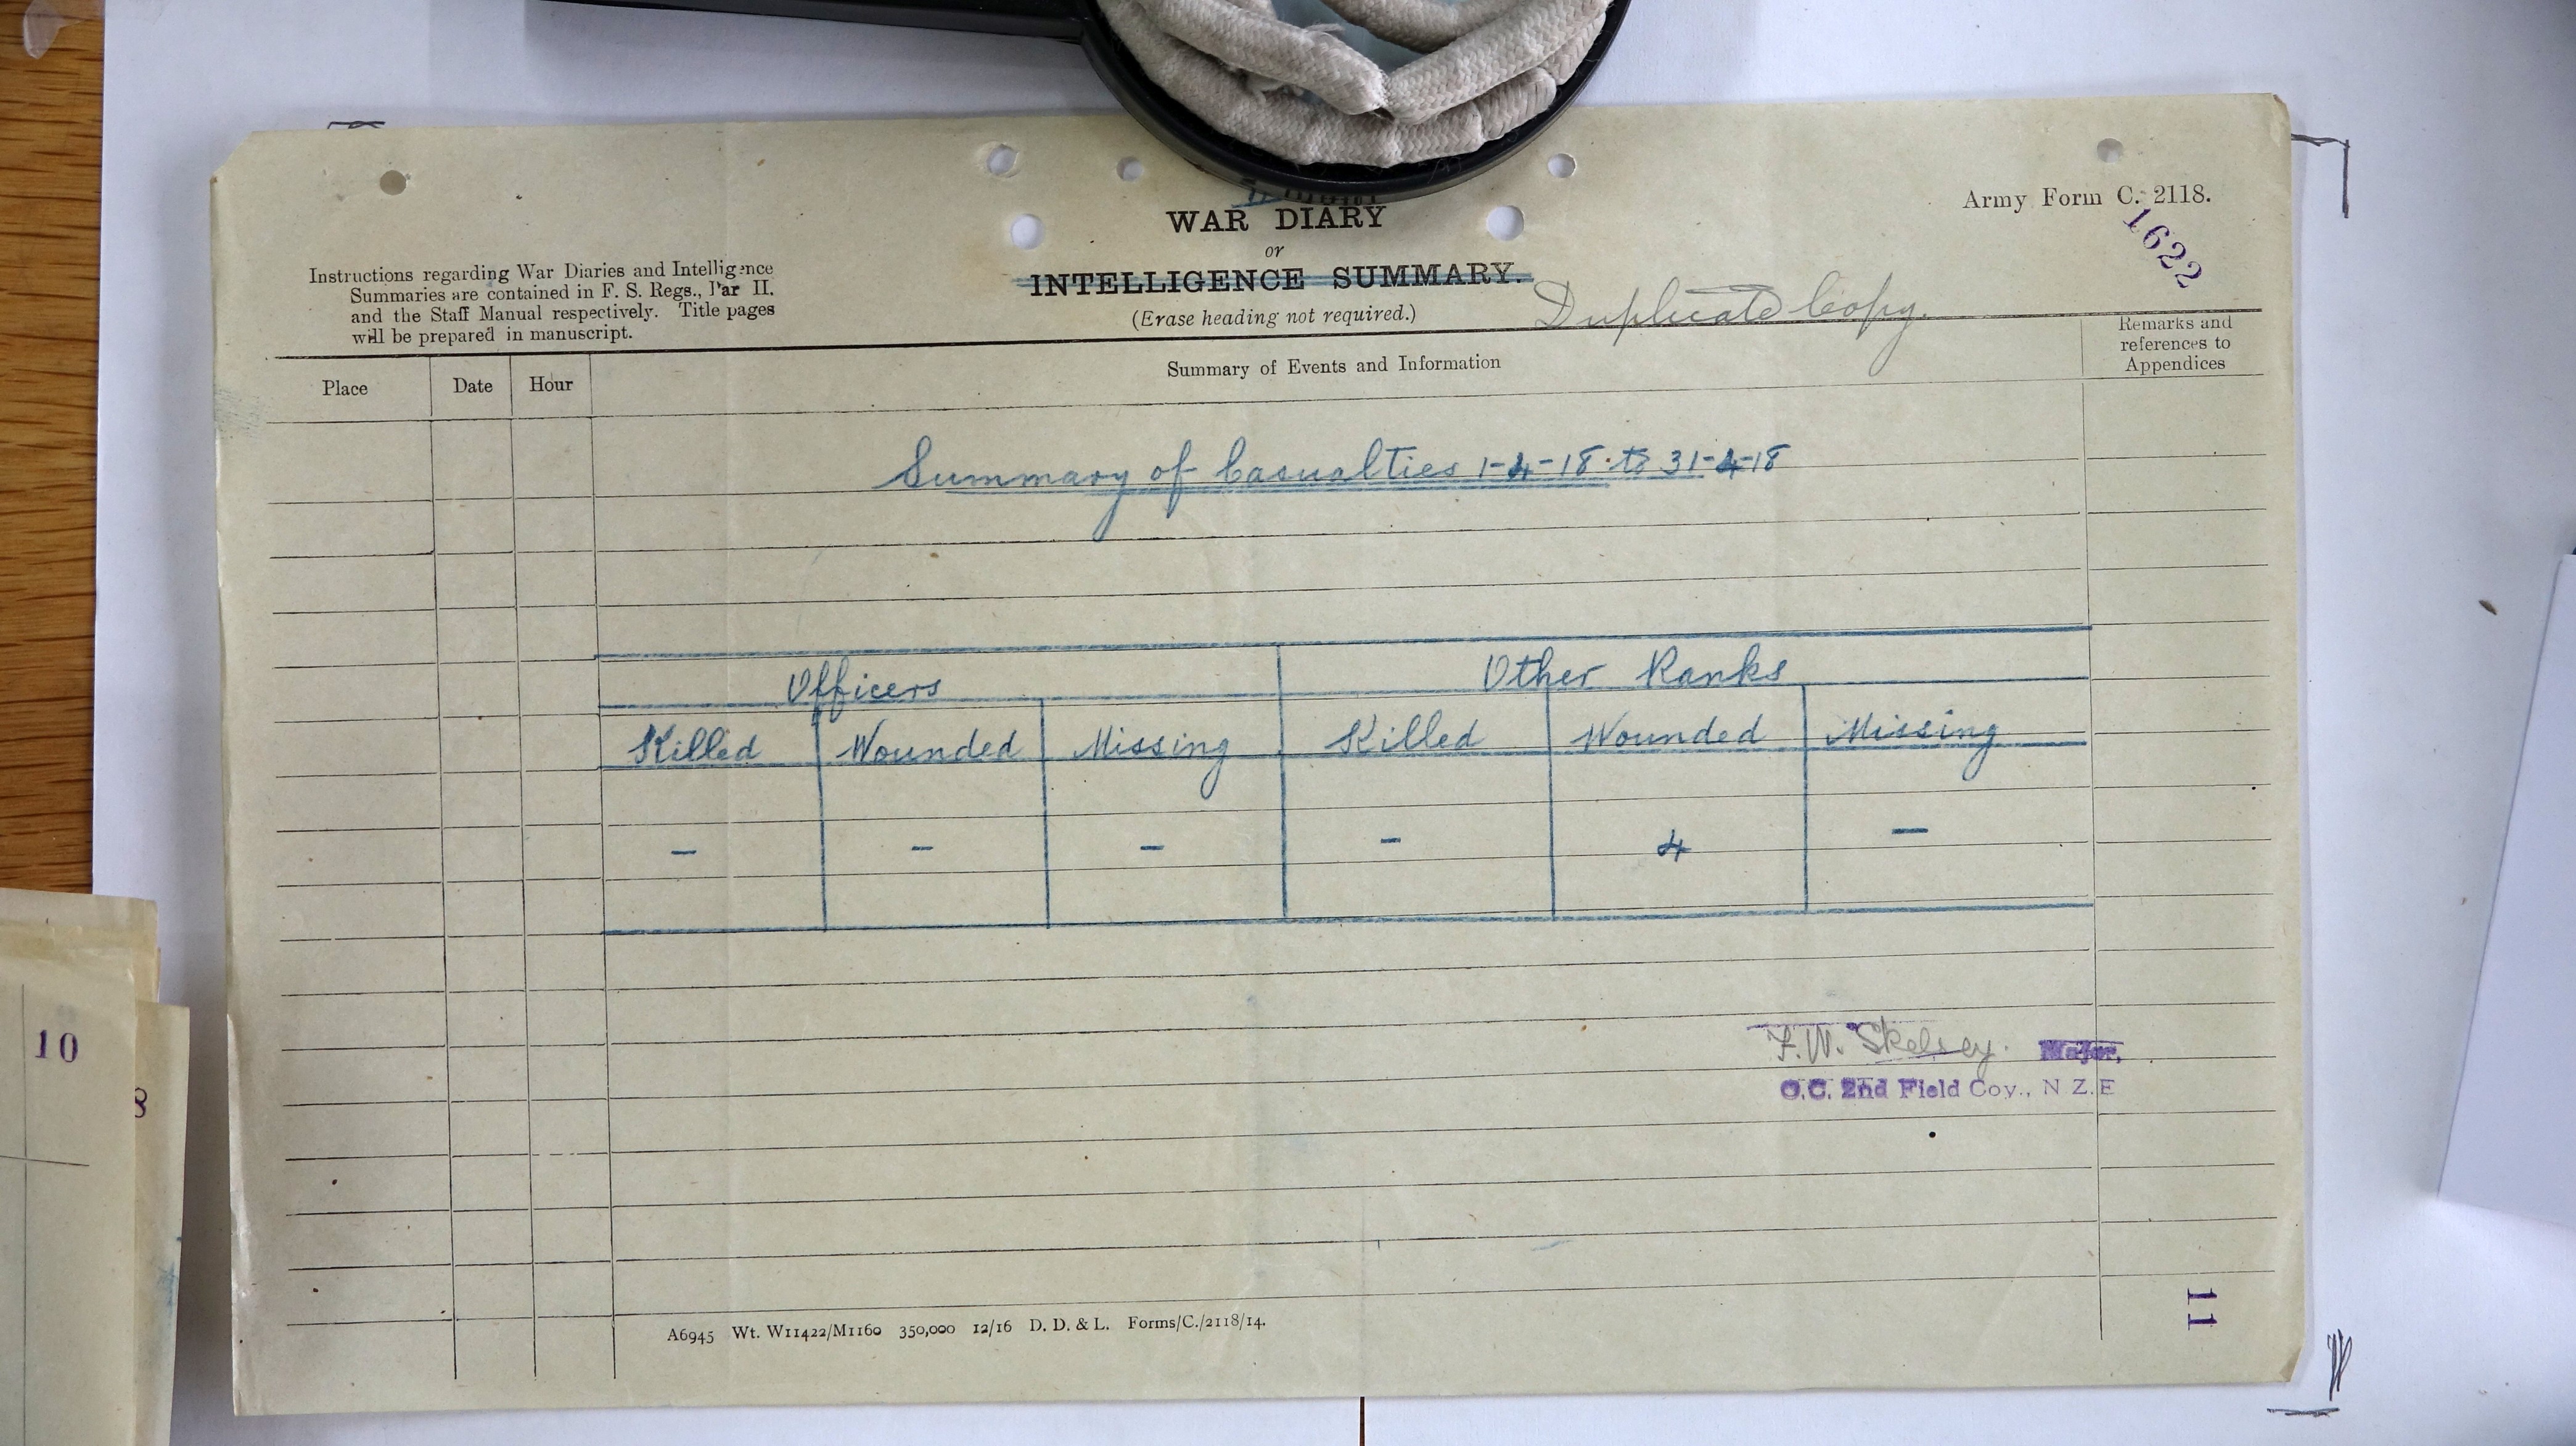 Army Form C. 2118.
1622
WAR DIARY
or
INTELLIGENCE SUMMARY.
(Erase heading not required.)
Duplicate Copy.
Instructions regarding War Diaries and Intelligence
Summaries are contained in F. S. Regs., Par II.
and the Staff Manual respectively. Title pages
will be prepared in manuscript.
Place
Date
Hour
Summary of Events and Information
Remarks and
references to
Appendices
Summary of Casualties 1-4-18 to 31-4-18
Officers
Other Ranks
Killed Wounded Missing Killed Wounded Missing
- - - - 4 -
F.W. Skelsey. Major,
O.C. 2nd Field Coy., N Z.E
11
A6945 Wt. W11422/M1160 350,000 12/16 D. D. & L. Forms/C./2118/14.
10
8